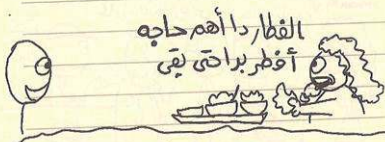 الفطار دا أهم حاجه
أفطر بدا حتى بقى